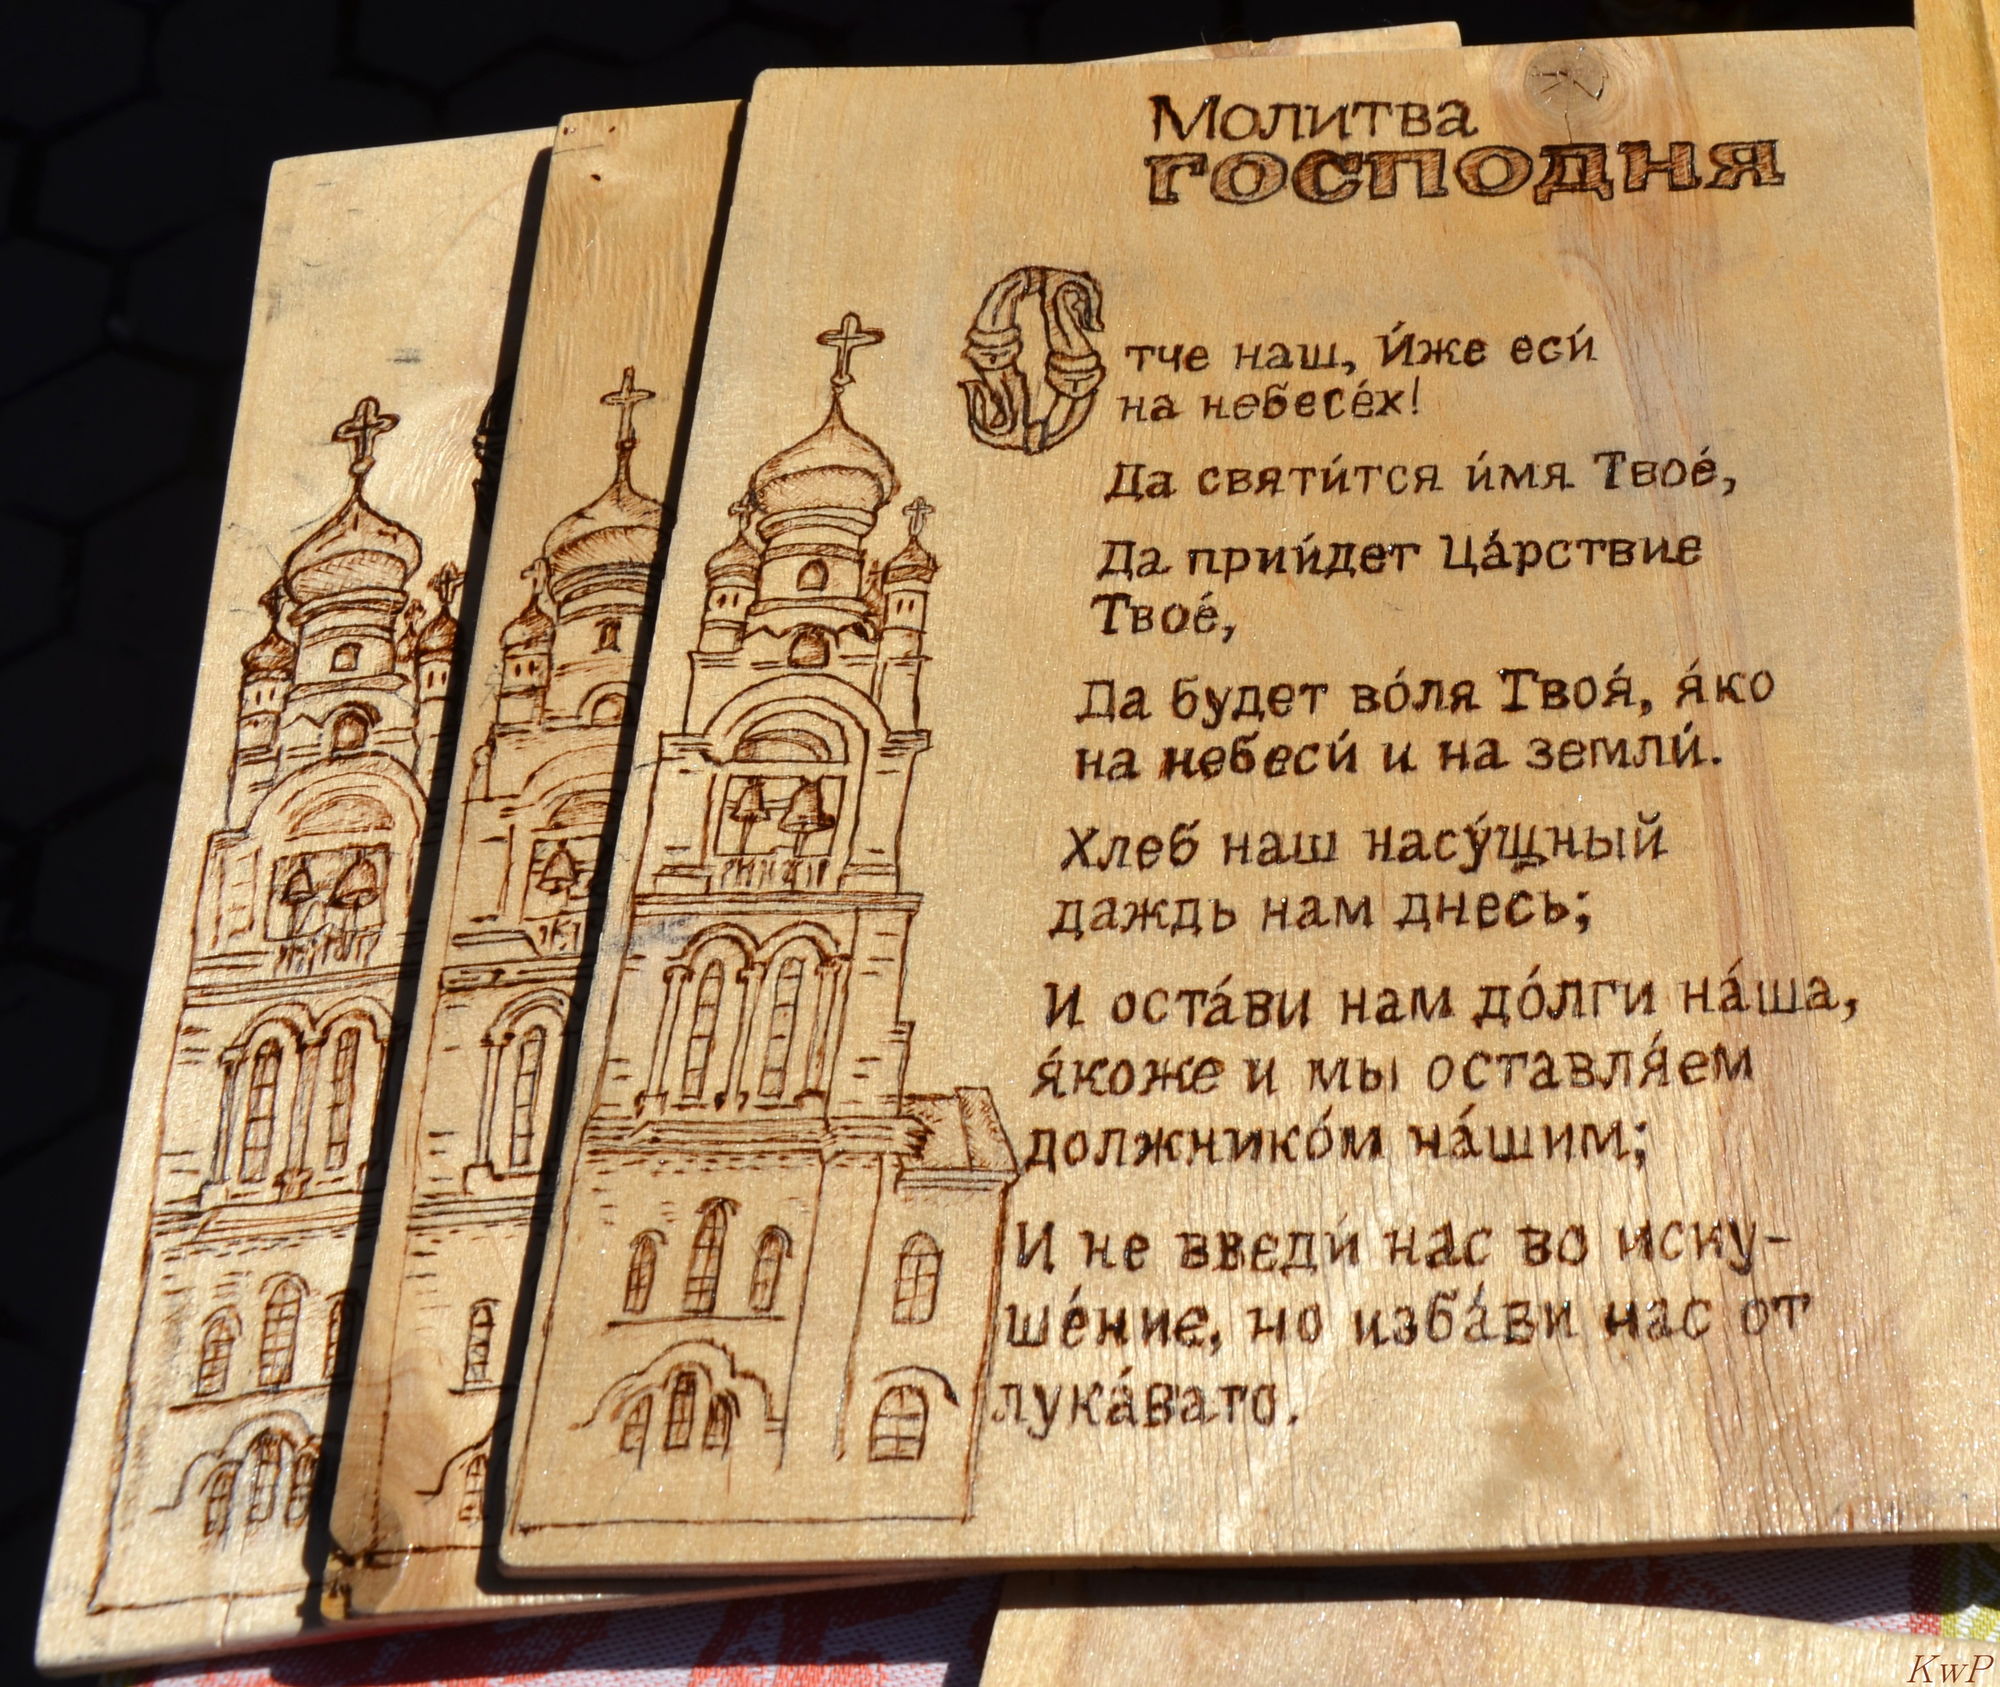 Молитва
ГОСПОДНЯ
Отче наш, И́же еси́
на небесе́х!
Да святи́тся и́мя Твое́,
Да прии́дет Ца́рствие
Твое́,
Да будет во́ля Твоя́, я́ко
на небеси́ и на земли́.
Хлеб наш насу́щный
даждь нам днесь;
И оста́ви нам до́лги на́ша,
я́коже и мы оставля́ем
должнико́м на́шим;
И не введи́ нас во иску-
ше́ние, но изба́ви нас от
лука́ваго.
KwP